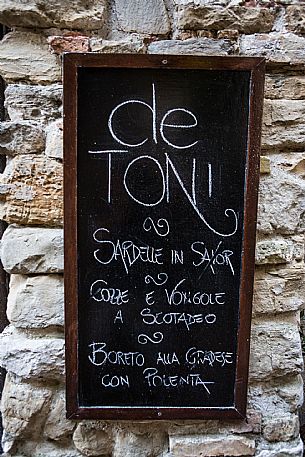 de
TONI
SARDELLE IN SAVOR
COZZE E VONGOLE
A SCOTADEO
BORETO ALLA GRADESE
CON POLENTA